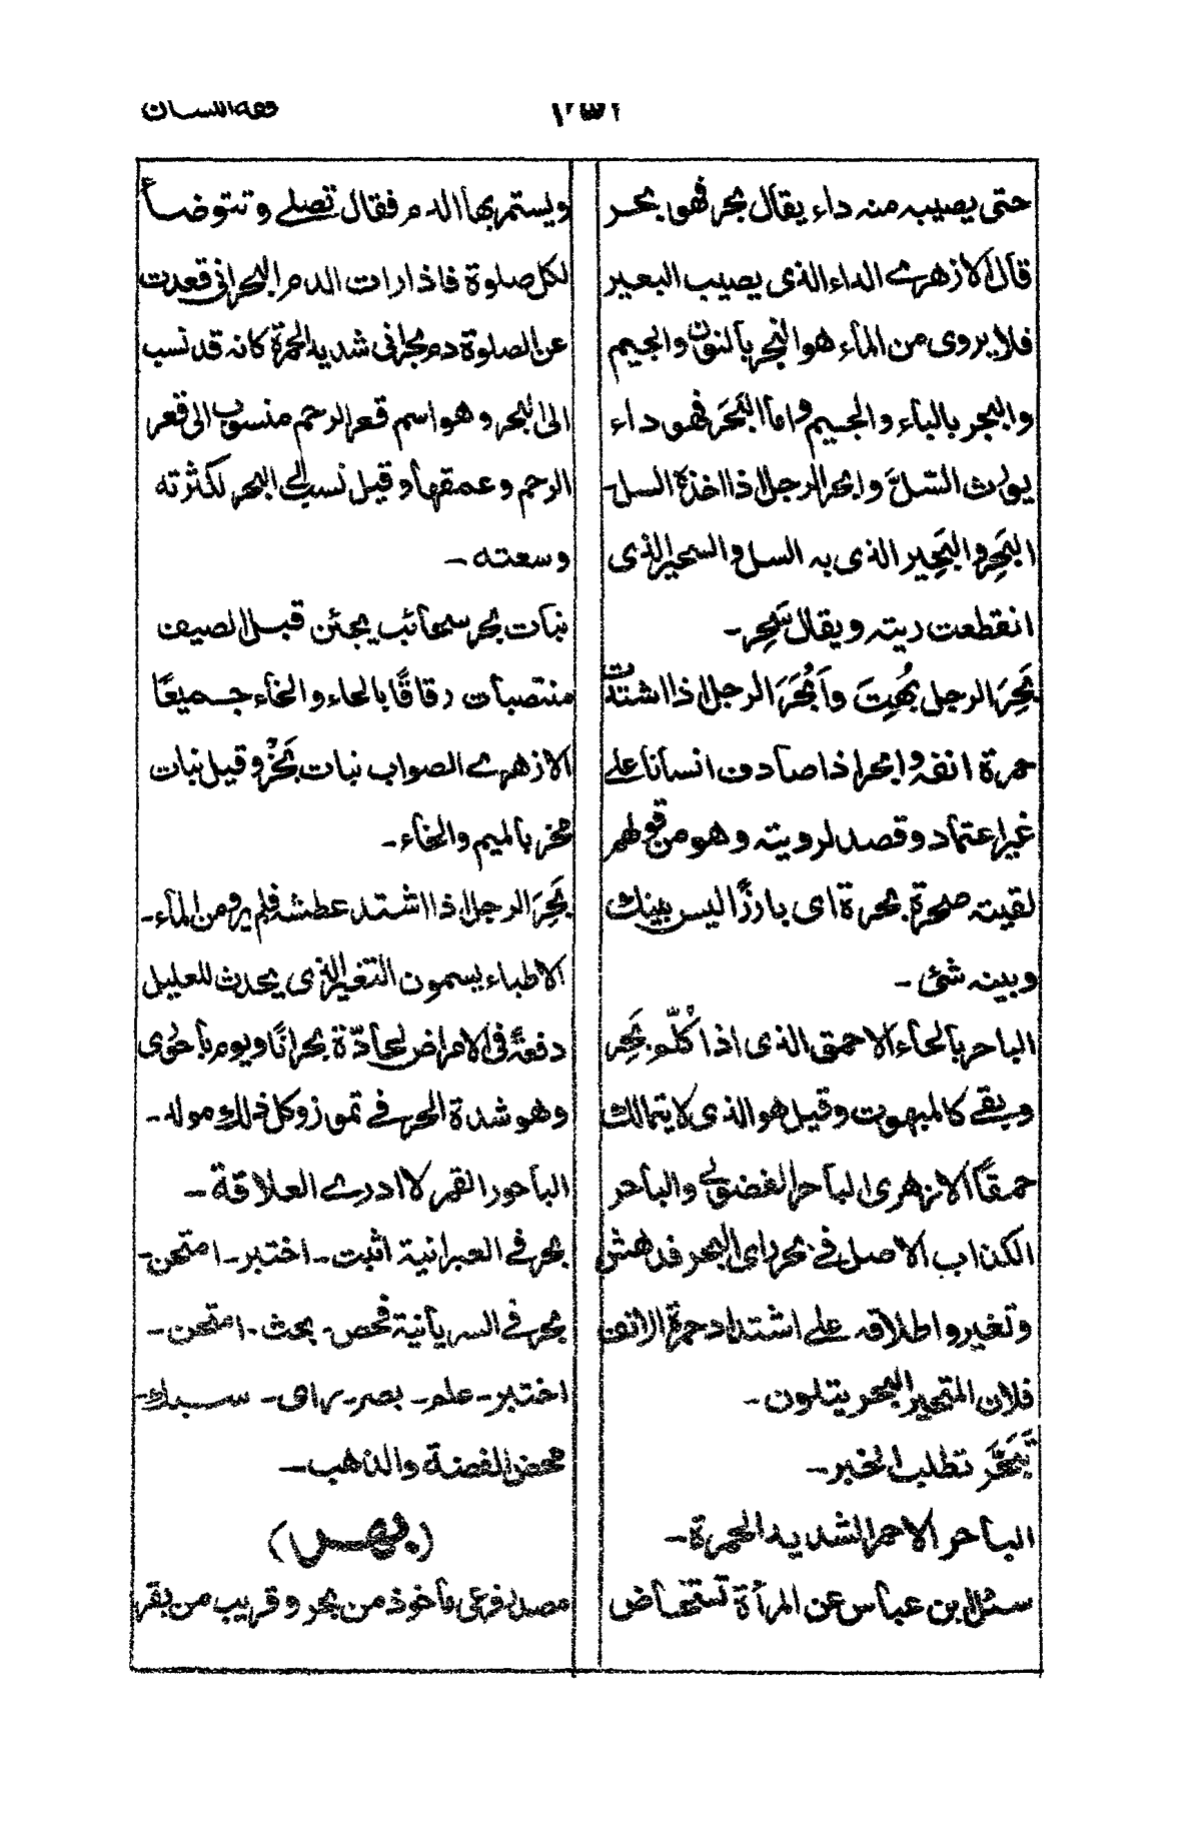 فقه اللسان
حتى يصيبه منه داء يقال بحر فهو بحر
قال الازهرى الداء الذى يصيب البعير
فلا يروى من المآء هو النجر بالنون والجيم
والبجر بالبآء والجيم واما البَحَر فهو داء
يورث السّلّ وابحر الرجل اذا اخذه السل-
البَحِر والبَحِير الذى به السل والسحير الذى
انقطعت ريته ويقال سَحِر-
بَحِرَ الرجل بُهِتَ وأَبْحَرَ الرجل اذا اشتدّت
حمرة انفه وابحر اذا صادف انسانا على
غير اعتماد وقصد لرويته وهو من قولهم
لقيته صحرة بحرة اى بارزًا ليس بينك
وبينه شئ -
الباحر بالحآء الاحمق الذى اذا كُلّم بَحِر
وبقى كالمبهوت وقيل هو الذى لا يتمالك
حمقًا الازهرى الباحر الفضولى والباحر
الكذاب الاصل فى بحر اى البحر فدهش
وتغير واطلاقه على اشتداد حمرة الانف
فلان المتحير البحر يتلون-
تَبَحَّرَ تطلب الخبر-
الباحر الاحمر الشديد الحمرة-
سئل ابن عباس عن المرأة تستحاض
ويستمر بها الدم فقال تصلى وتتوضأ
لكل صلوة فاذا رات الدم البحرانى قعدت
عن الصلوة دم بحرانى شديد الحمرة كانه قد نسب
الى البحر وهو اسم قعر الرحم منسوب الى قعر
الرحم وعمقها وقيل نسب الى البحر لكثرته
وسعته-
بنات بحر سحائب يجئن قبل الصيف
منتصبات رقاقًا بالحاء والخآء جميعًا
الازهرى الصواب بنات بَخْر وقيل بنات
مخر بالميم والخآء-
بَحِرَ الرجل اذا اشتد عطشه فلم يرو من المآء-
الاطباء يسمون التغير الذى يحدث للعليل
دفعةً فى الامراض الحادّة بحرانًا ويوم باحورى
وهو شدة الحر فى تموز وكل ذلك مولد-
الباحور القمر لا ادرى العلاقة-
بحر فى العبرانية اثبت- اختبر- امتحن-
بحر فى السريانية فحص- بحث- امتحن-
اختبر- علم- بصر- راى- سبك-
محض الفضة والذهب-
مصدر فرعى مأخوذ من بحر وقريب من بقر